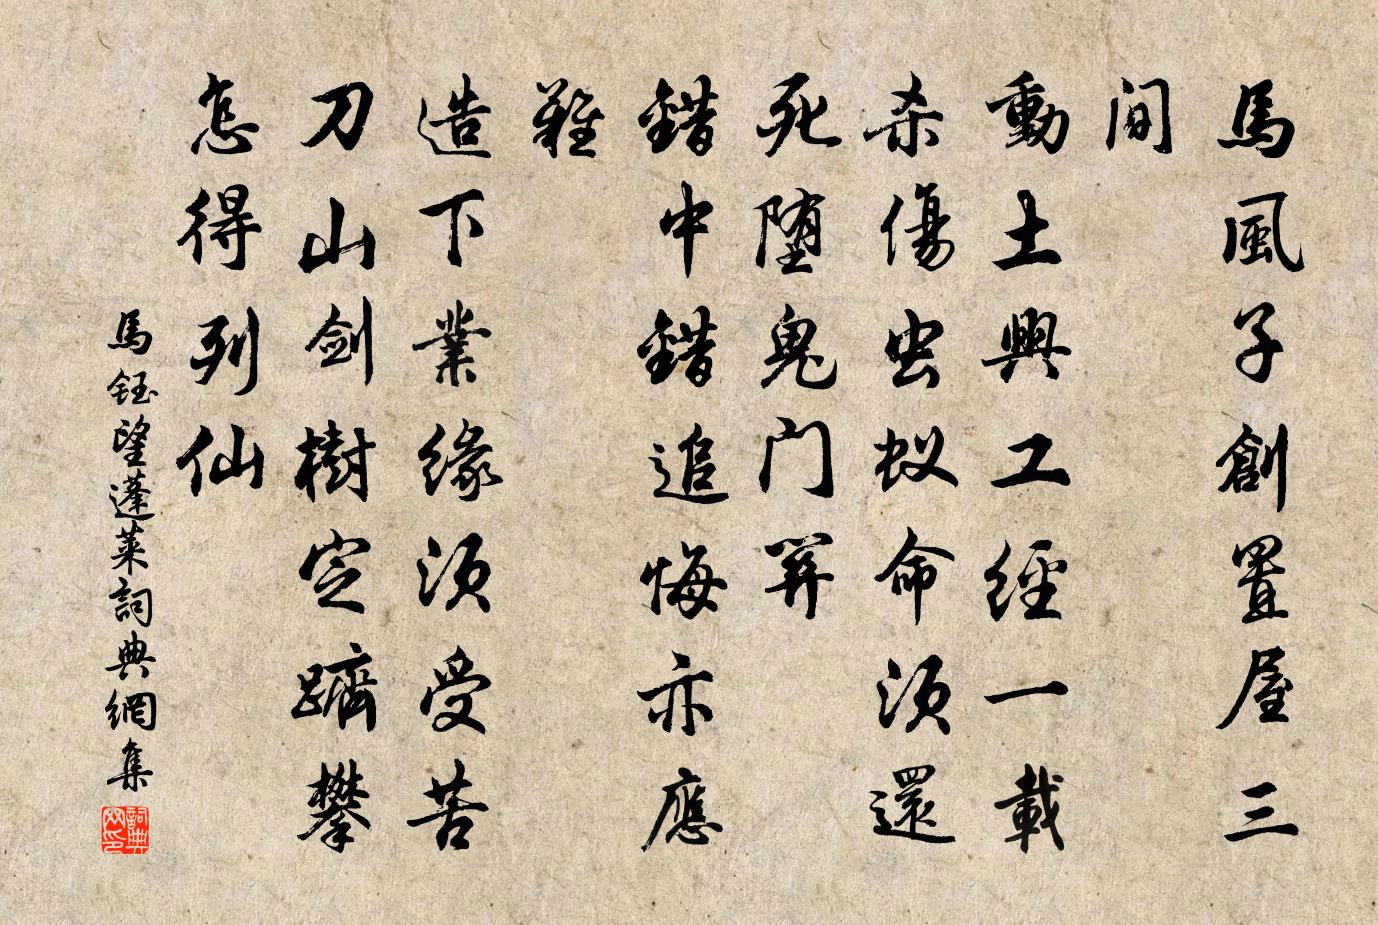 馬風子創置屋三
間
動土興工經一載
杀傷虫蚁命須還
死堕鬼门關
錯中錯追悔亦應
難
造下業缘須受苦
刀山剑樹定躋攀
怎得列仙
馬鈺望蓬萊詞典網集
詞典网印